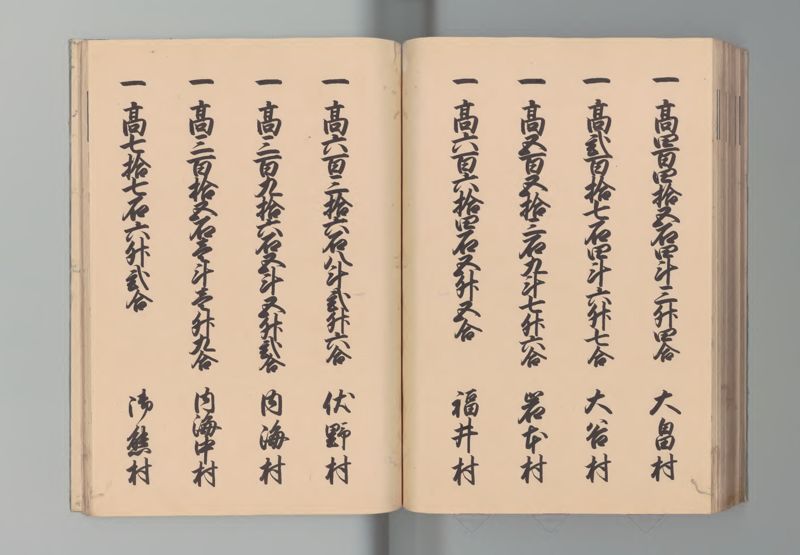 一 高四百四拾五石四斗三升四合 大畠村
一 高弐百拾七石四斗六升七合 大谷村
一 高五百五拾三石九斗七升六合 岩本村
一 高六百六拾四石五升五合 福井村
一 高六百三拾六石八斗弐升六合 伏野村
一 高三百九拾六石五斗五升弐合 内海村
一 高三百拾五石壱斗壱升九合 内海中村
一 高七拾七石六升弐合 御熊村